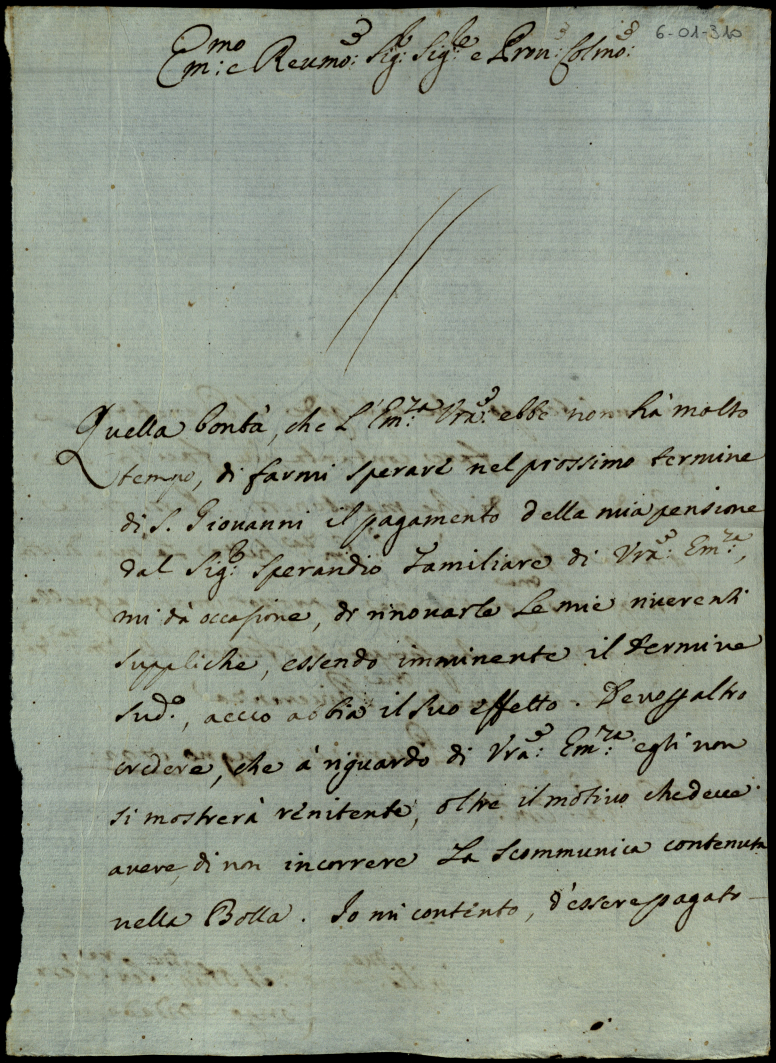 6-01-310
Em.mo e Reumo: Sig: Sig:re e Pron: Colmo:
Quella bontà, che L'Em:za Vra: ebbe non hà molto
tempo, di farmi sperare nel prossimo termine
di S. Giovanni il pagamento della mia pensione
dal Sig:r Sperandio Familiare di Vra: Em:za,
mi dà occasione, di rinovarle le mie riverenti
suppliche, essendo imminente il termine
sud.o, acciò abbia il suo effetto. Devo p altro
credere, che à riguardo di Vra: Em:za egli non
si mostrerà renitente, oltre il motivo che deve
avere, di non incorrere La Scommunica contenuta
nella Bolla. Io mi contento, d'essere pagato